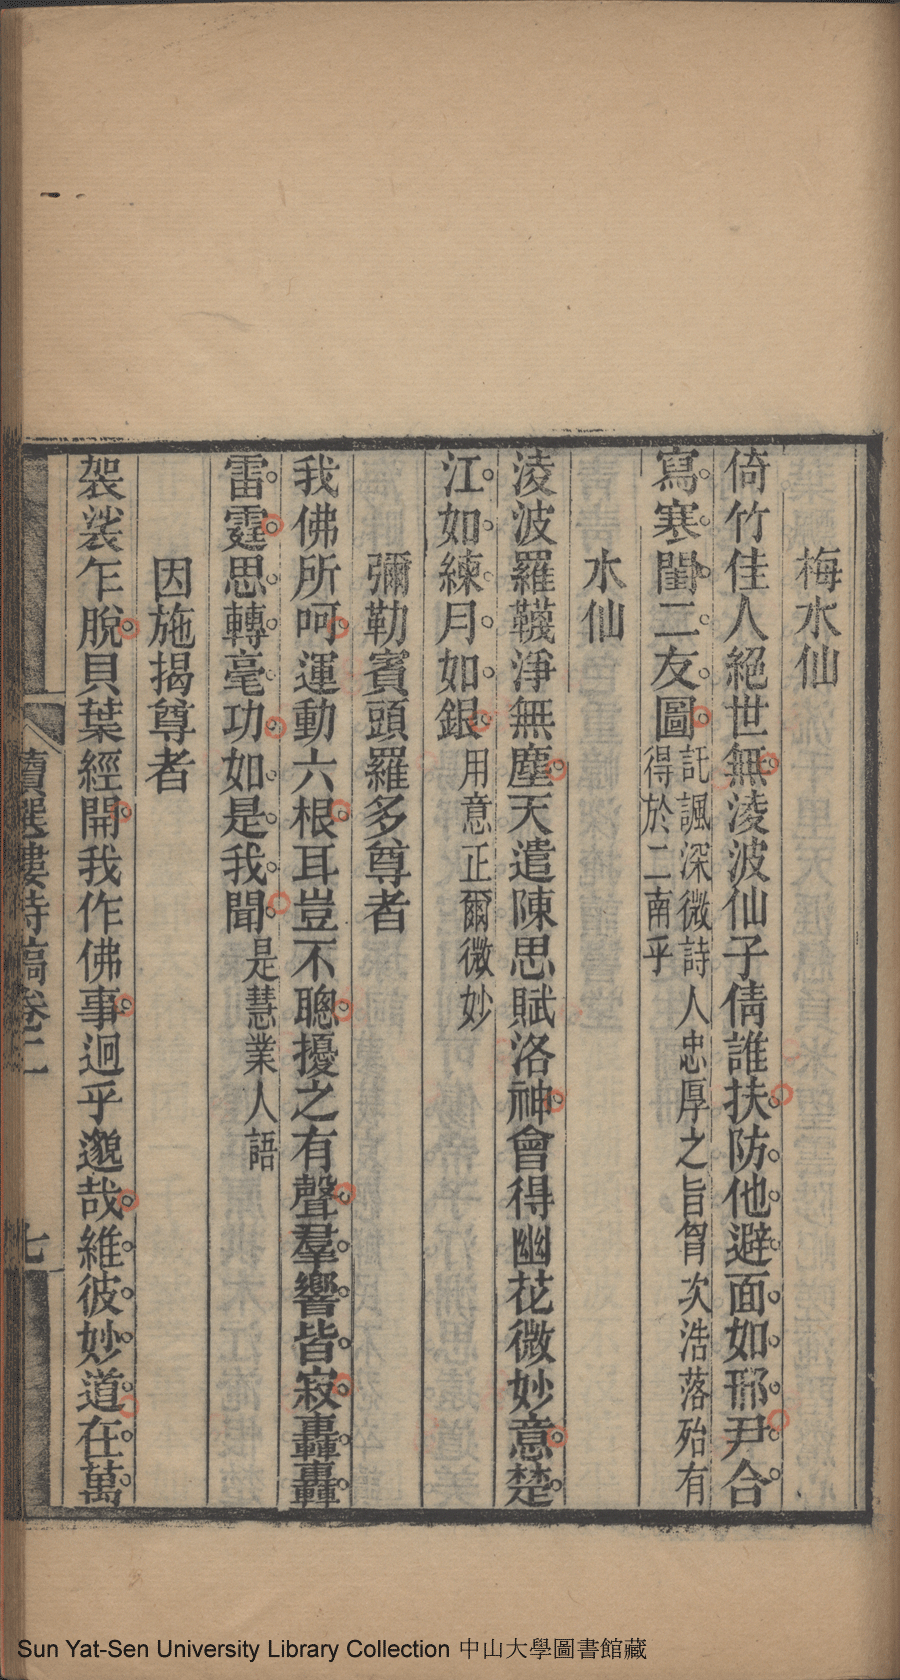 梅水仙
倚竹佳人絕世無淩波仙子倩誰扶防他避面如邢尹合
寫寒閨二友圖託諷深微詩人忠厚之旨胷次浩落殆有
得於二南乎
水仙
淩波羅韈淨無塵天遣陳思賦洛神會得幽花微妙意楚
江如練月如銀用意正爾微妙
彌勒賓頭羅多尊者
我佛所呵運動六根耳豈不聰擾之有聲羣響皆寂轟轟
雷霆思轉毫功如是我聞是慧業人語
因施揭尊者
袈裟乍脫貝葉經開我作佛事迥乎邈哉維彼妙道在萬
讀選樓詩稿卷二
七
Sun Yat-Sen University Library Collection 中山大學圖書館藏